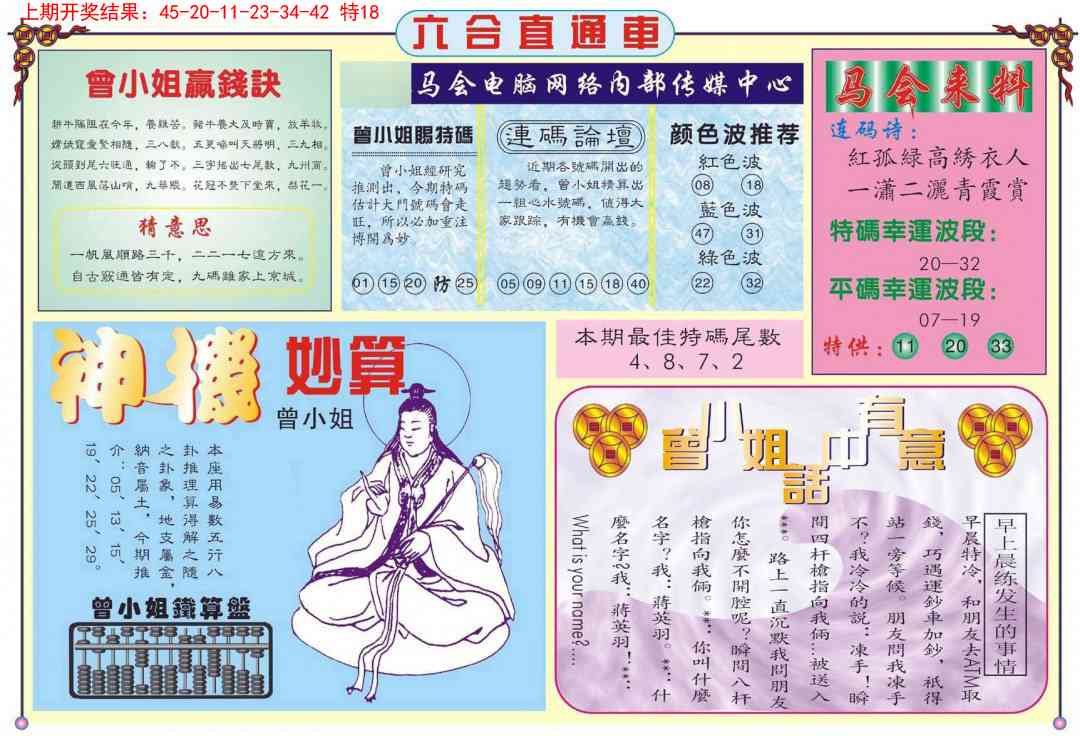 上期开奖结果：45-20-11-23-34-42 特18
六合直通車
曾小姐贏錢訣
耕牛隔阻在今年，養雞苦。豬牛養大及時賣，放羊牧。
嫦娥寵愛緊相隨，三八獻。五更啼叫天將明，三九相。
從頭到尾六旺通，輸了不。三字摇出七尾數，九州商。
聞道西風落山哨，九華眼。花冠不焚下堂來，梨花一。
猜意思
一帆風順路三千，二二一七遠方來。
自古竅通皆有定，九碼離家上京城。
马会电脑网络内部传媒中心
曾小姐賜特碼
曾小姐經研究
推測出，今期特碼
估計大門號碼會走
旺，所以必加重注
博開爲妙
01 15 20 防 25
連碼論壇
近期各號碼開出的
趨勢看，曾小姐精算出
一組心水號碼，值得大
家跟踪，有機會贏錢。
05 09 11 15 18 40
颜色波推荐
紅色波
08 18
藍色波
47 31
綠色波
22 32
马会来料
连码诗：
紅孤緑高綉衣人
一瀟二灑青霞賞
特碼幸運波段：
20—32
平碼幸運波段：
07—19
特供：11 20 33
本期最佳特碼尾數
4、8、7、2
神機妙算
曾小姐
本座用易數五行八
卦推理算得解之随
之卦象，地支屬金，
納音屬土，今期推
介：05、13、15、
19、22、25、29。
曾小姐鐵算盤
曾小姐話中有意
早上晨练发生的事情
早晨特冷，和朋友去ATM取
錢，巧遇運鈔車加鈔，祇得
站一旁等候。朋友問我凍手
不？我冷冷的説：凍手！瞬
間四杆槍指向我倆…被送入
***。路上一直沉默我問朋友
你怎麼不開腔呢？瞬間八杆
槍指向我倆。**：你叫什麼
名字？我：蔣英羽。**：什
麼名字?我：蔣英羽！**：
What is your name?....